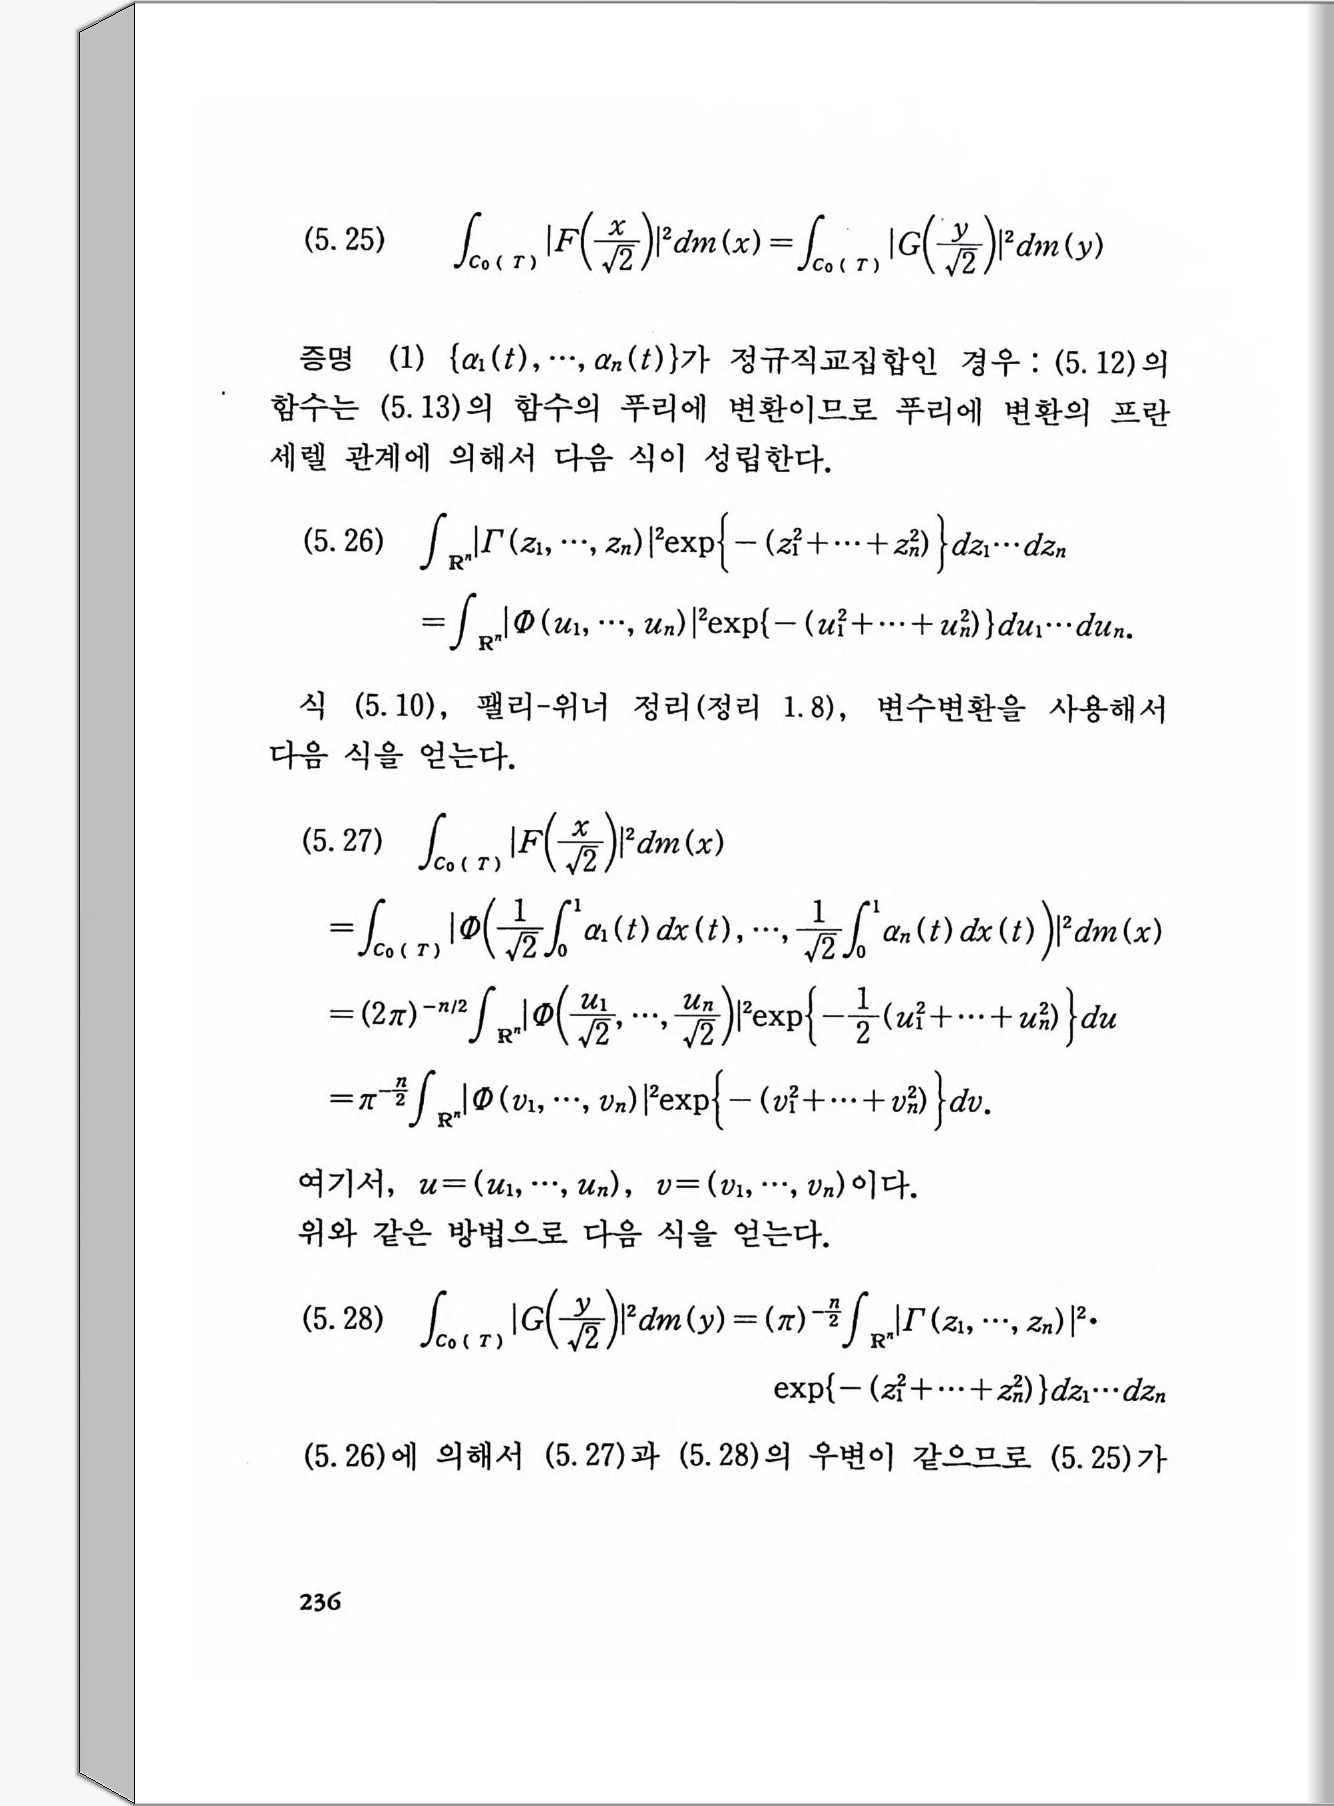 (5. 25) ∫_{C₀(T)} |F(x/√2)|² dm(x) = ∫_{C₀(T)} |G(y/√2)|² dm(y)
증명 (1) {α₁(t), ⋯, αₙ(t)}가 정규직교집합인 경우 : (5. 12)의
함수는 (5. 13)의 함수의 푸리에 변환이므로 푸리에 변환의 프란
세렐 관계에 의해서 다음 식이 성립한다.
(5. 26) ∫_{Rⁿ} |Γ(z₁, ⋯, zₙ)|² exp{−(z₁²+⋯+zₙ²)} dz₁⋯dzₙ
=∫_{Rⁿ} |Φ(u₁, ⋯, uₙ)|² exp{−(u₁²+⋯+uₙ²)} du₁⋯duₙ.
식 (5. 10), 팰리-위너 정리(정리 1. 8), 변수변환을 사용해서
다음 식을 얻는다.
(5. 27) ∫_{C₀(T)} |F(x/√2)|² dm(x)
=∫_{C₀(T)} |Φ(1/√2 ∫₀¹ α₁(t) dx(t), ⋯, 1/√2 ∫₀¹ αₙ(t) dx(t))|² dm(x)
=(2π)^{−n/2} ∫_{Rⁿ} |Φ(u₁/√2, ⋯, uₙ/√2)|² exp{−1/2 (u₁²+⋯+uₙ²)} du
=π^{−n/2} ∫_{Rⁿ} |Φ(v₁, ⋯, vₙ)|² exp{−(v₁²+⋯+vₙ²)} dv.
여기서, u=(u₁, ⋯, uₙ), v=(v₁, ⋯, vₙ)이다.
위와 같은 방법으로 다음 식을 얻는다.
(5. 28) ∫_{C₀(T)} |G(y/√2)|² dm(y) = (π)^{−n/2} ∫_{Rⁿ} |Γ(z₁, ⋯, zₙ)|²·
exp{−(z₁²+⋯+zₙ²)} dz₁⋯dzₙ
(5. 26)에 의해서 (5. 27)과 (5. 28)의 우변이 같으므로 (5. 25)가
236